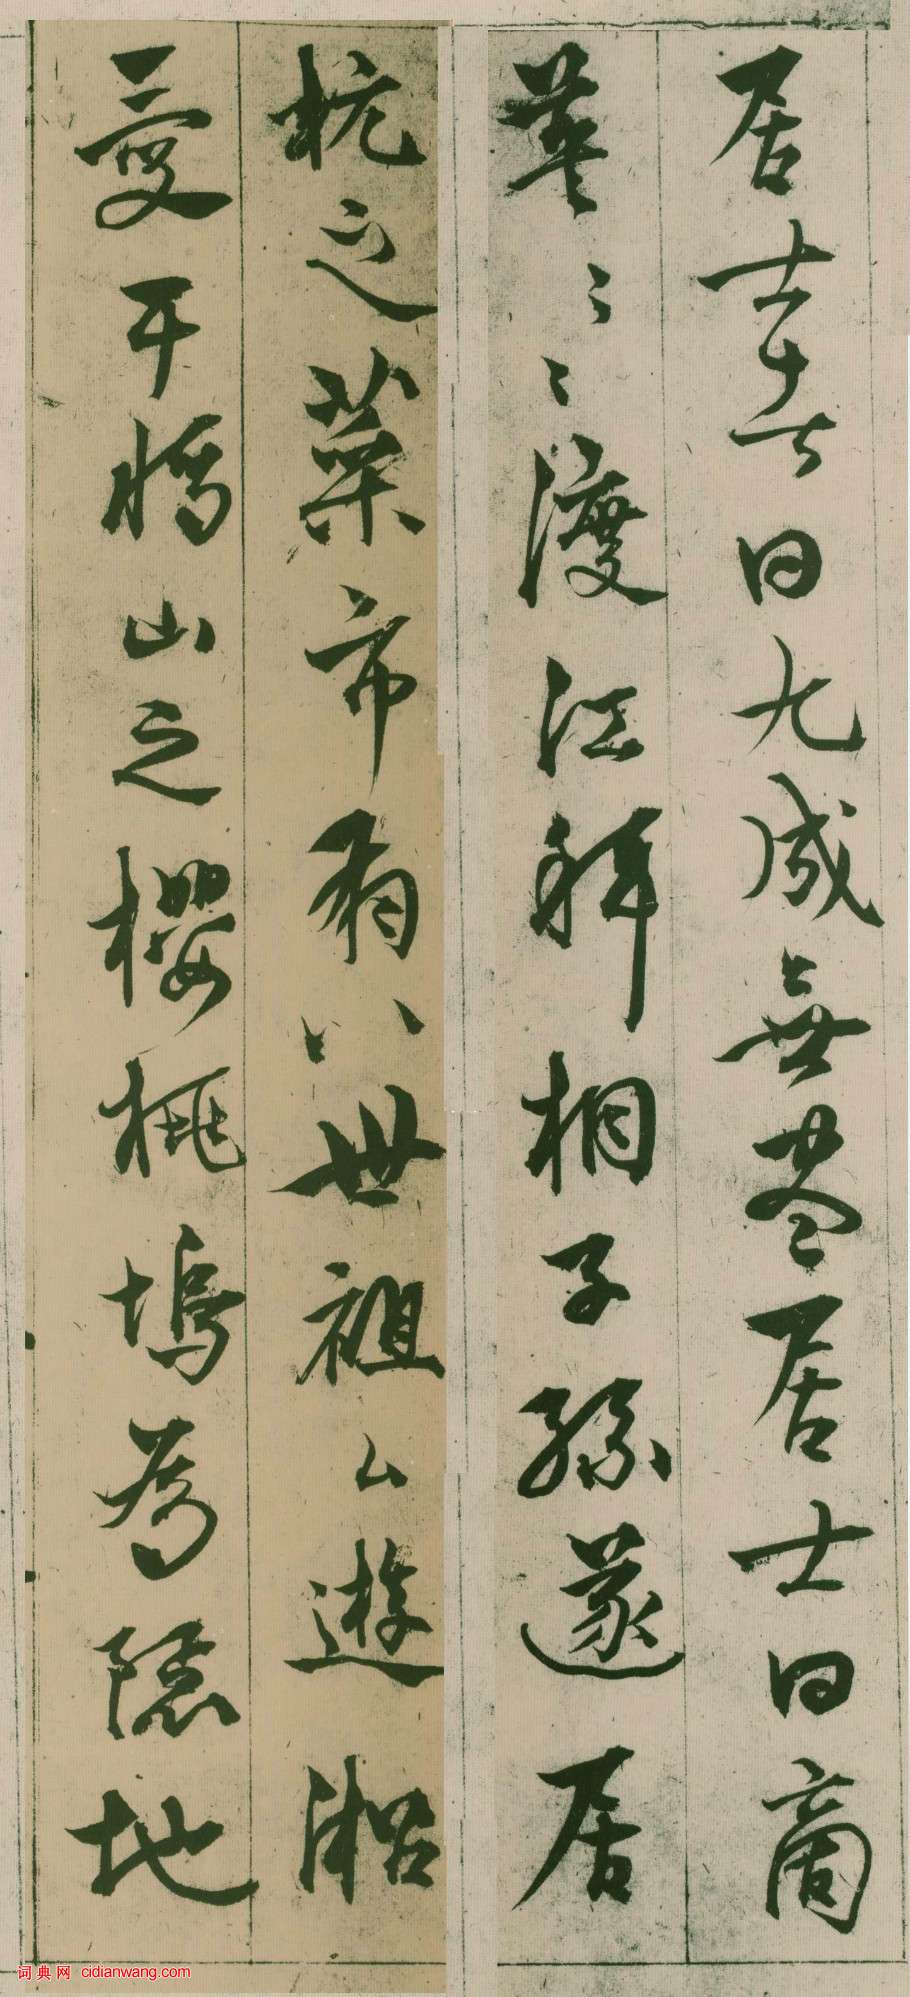 居士其一曰九成無盡居士曰商
英英渡江拜相子孫遂居
杭之菜市有八世祖公遊湘
愛干將山之櫻桃塢為隱地
词典网 cidianwang.com